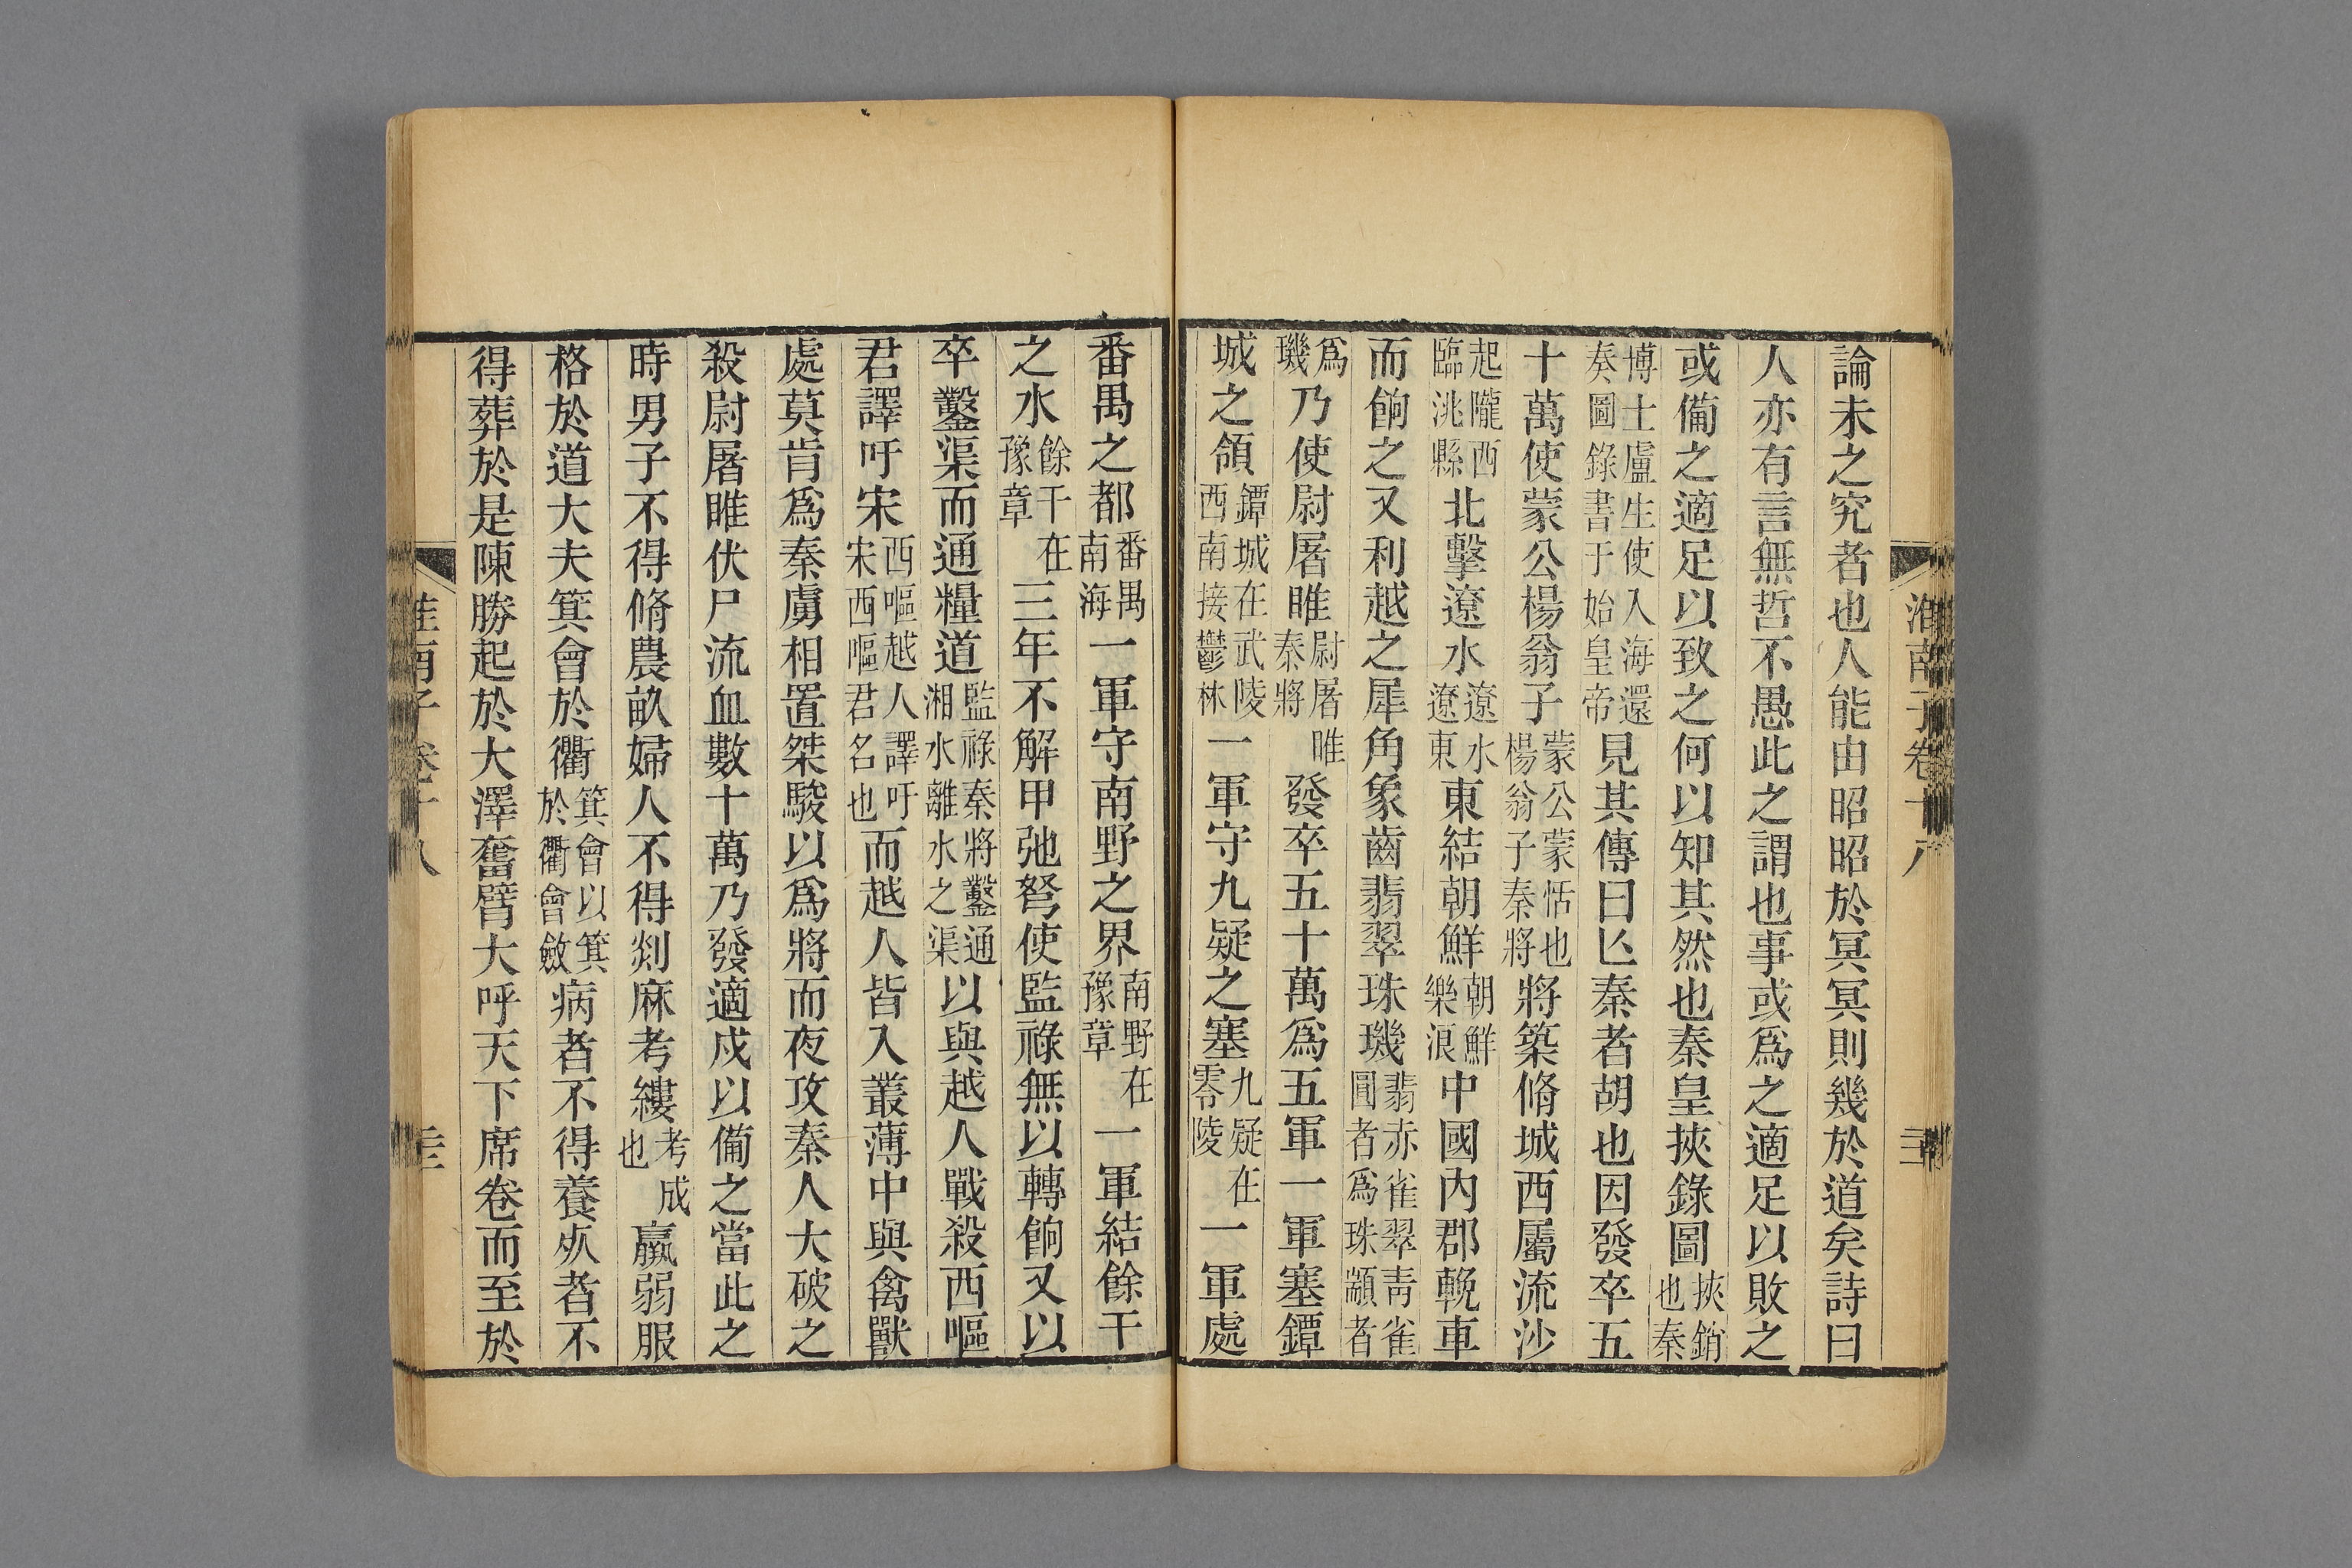 論未之究者也人能由昭昭於冥冥則幾於道矣詩曰
人亦有言無哲不愚此之謂也事或爲之適足以敗之
或備之適足以致之何以知其然也秦皇挾錄圖挾銷也秦
博士盧生使入海還奏圖錄書于始皇帝見其傳曰亾秦者胡也因發卒五
十萬使蒙公楊翁子蒙公蒙恬也楊翁子秦將將築脩城西屬流沙
起隴西臨洮縣北擊遼水遼水遼東東結朝鮮朝鮮樂浪中國內郡輓車
而餉之又利越之犀角象齒翡翠珠璣翡赤雀翠青雀圓者爲珠顓者
爲璣乃使尉屠睢尉屠睢秦將發卒五十萬爲五軍一軍塞鐔
城之領鐔城在武陵西南接鬱林一軍守九疑之塞九疑在零陵一軍處
番禺之都番禺南海一軍守南野之界南野在豫章一軍結餘干
之水餘干在豫章三年不解甲弛弩使監祿無以轉餉又以
卒鑿渠而通糧道監祿秦將鑿通湘水離水之渠以與越人戰殺西嘔
君譯吁宋西嘔越人譯吁宋西嘔君名也而越人皆入叢薄中與禽獸
處莫肯爲秦虜相置桀駿以爲將而夜攻秦人大破之
殺尉屠睢伏尸流血數十萬乃發適戍以備之當此之
時男子不得脩農畝婦人不得剡麻考縷考成也羸弱服
格於道大夫箕會於衢箕會以箕於衢會斂病者不得養死者不
得葬於是陳勝起於大澤奮臂大呼天下席卷而至於
淮南子卷十八